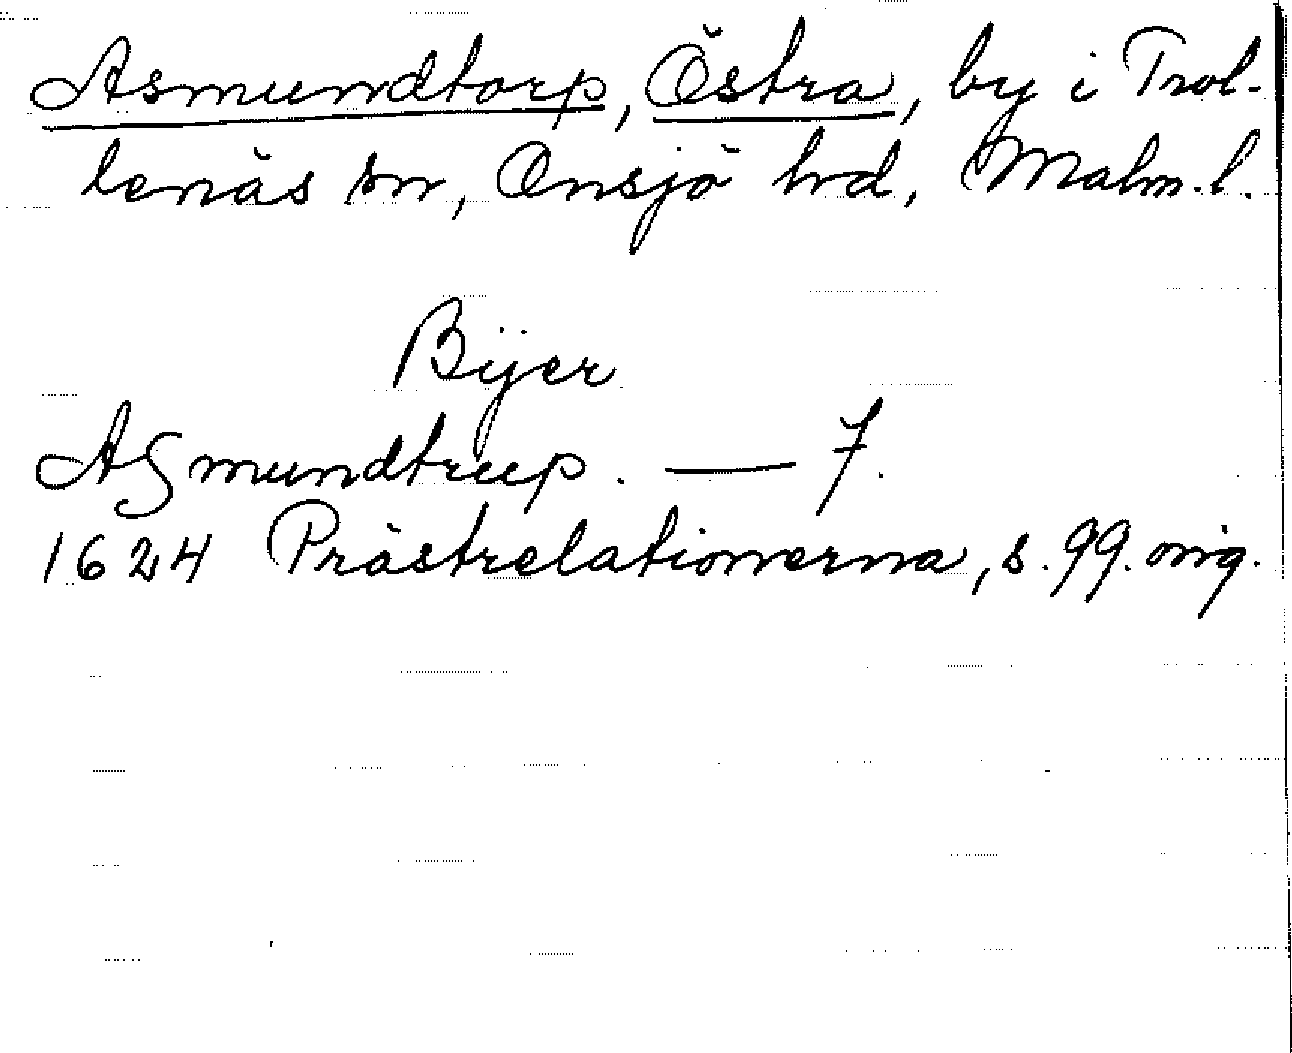 Asmundtorp, Östra, by i Trol-
lenäs sn, Onsjö hrd, Malm. l.
Bÿer
ASmundtrup. — 7.
1624 Prästrelationerna, s. 99. orig.